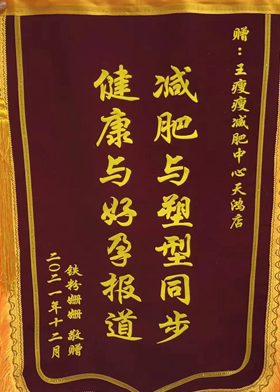 赠：王瘦瘦减肥中心天鸿店
减肥与塑型同步
健康与好孕报道
铁粉姗姗 敬赠
二〇二一年十二月